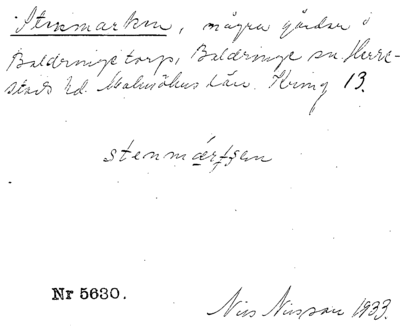 Stenmarken, några gårdar i
Baldringetorp, Baldringe sn. Herre-
stads hd. Malmöhus län. Kring 13.
stenmærtʃen
Nr 5630.
Nils Nilsson 1933.